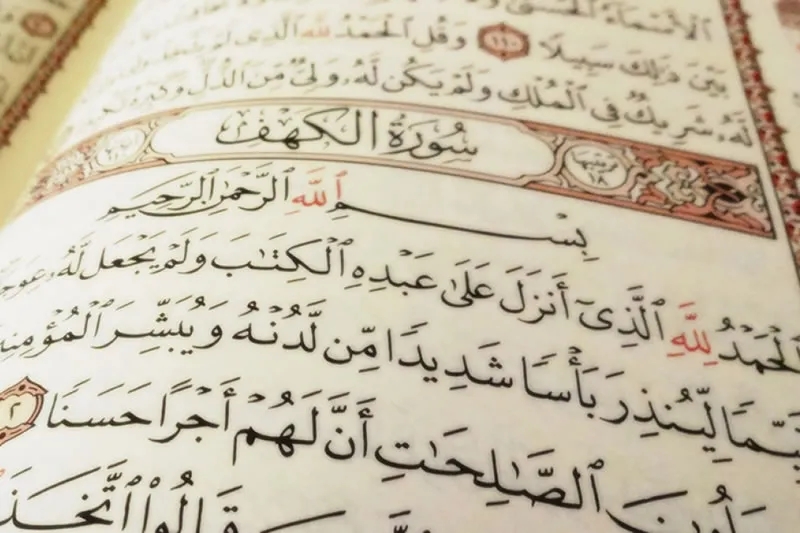 ٱلْأَسْمَآءُ ٱلْحُسْنَىٰ
بَيْنَ ذَٰلِكَ سَبِيلًا ١١٠ وَقُلِ ٱلْحَمْدُ لِلَّهِ ٱلَّذِى لَمْ
لَّهُۥ شَرِيكٌ فِى ٱلْمُلْكِ وَلَمْ يَكُن لَّهُۥ وَلِىٌّ مِّنَ ٱلذُّلِّ وَكَبِّرْهُ
سُورَةُ الكَهْفِ
بِسْمِ ٱللَّهِ ٱلرَّحْمَٰنِ ٱلرَّحِيمِ
ٱلْحَمْدُ لِلَّهِ ٱلَّذِىٓ أَنزَلَ عَلَىٰ عَبْدِهِ ٱلْكِتَٰبَ وَلَمْ يَجْعَل لَّهُۥ
لِّيُنذِرَ بَأْسًا شَدِيدًا مِّن لَّدُنْهُ وَيُبَشِّرَ
ٱلصَّٰلِحَٰتِ أَنَّ لَهُمْ أَجْرًا حَسَنًا ٢
قَالُوا۟ ٱتَّخَذَ